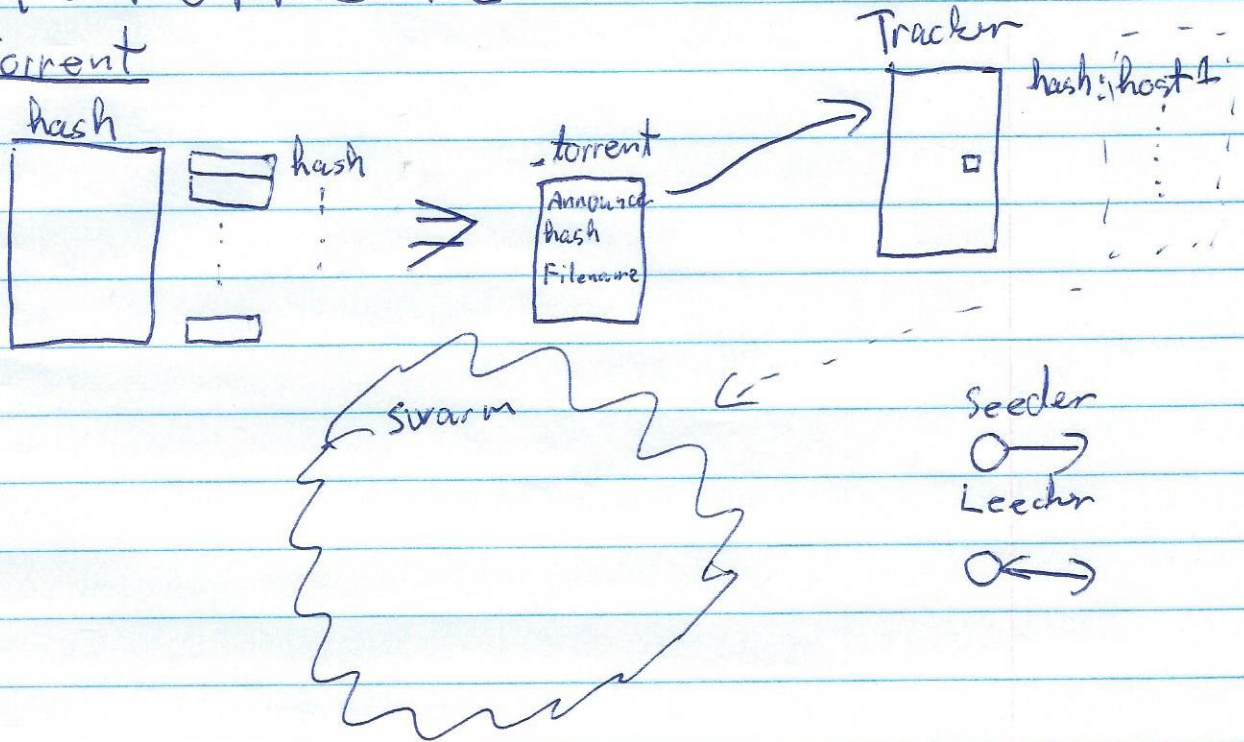 orrent
hash
hash
.torrent
Announce
hash
Filename
Tracker
hash: host 1
swarm
Seeder
Leecher